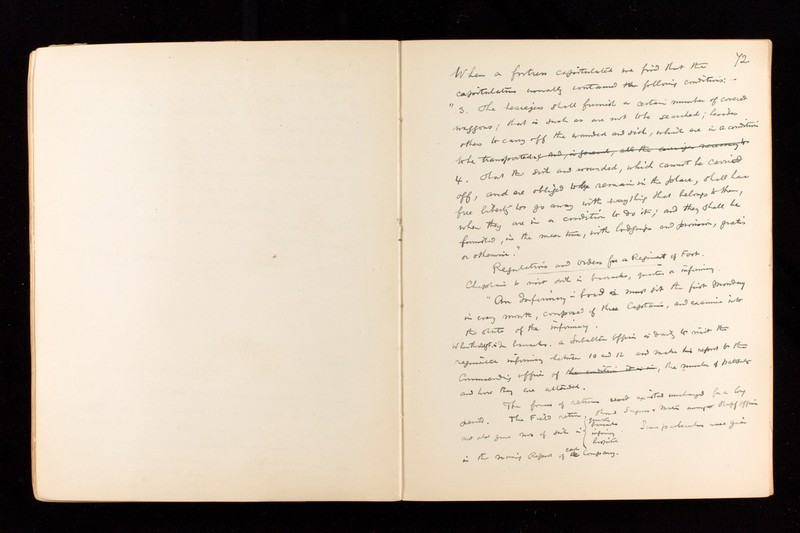 72
When a fortress capitulated we find that the
capitulation usually contained the following conditions:-
"3. The besiegers shall furnish a certain number of covered
waggons; that is such as are not to be searched; besides
others to carry off the wounded and sick, which are in a condition
to be transported; and, in general, all the carriages necessary to
4. That the sick and wounded, which cannot be carried
off, and are obliged to remain in the place, shall have
free liberty to go away with everything that belongs to them,
when they are in a condition to do it; and they shall be
furnished, in the mean time, with lodgings and provision, gratis
or otherwise."
Regulations and Orders for a Regiment of Foot.
Chaplain to visit sick in barracks, quarters or infirmary.
"An Infirmary-board must sit the first Monday
in every month, composed of three Captains, and examine into
the state of the infirmary.
in barracks. a Subaltern Officer is daily to visit the
regimental infirmary between 10 and 12 and make his report to the
Commanding officer of the condition it is in, the number of
and how they are attended.
The forms of returns existed unchanged for a long
The Field return, showed Surgeon & Mate amongst Staff officers
and also gave nos of sick in quarters
barracks
infirmary
hospital
These particulars were given
in the morning Report of each Company.